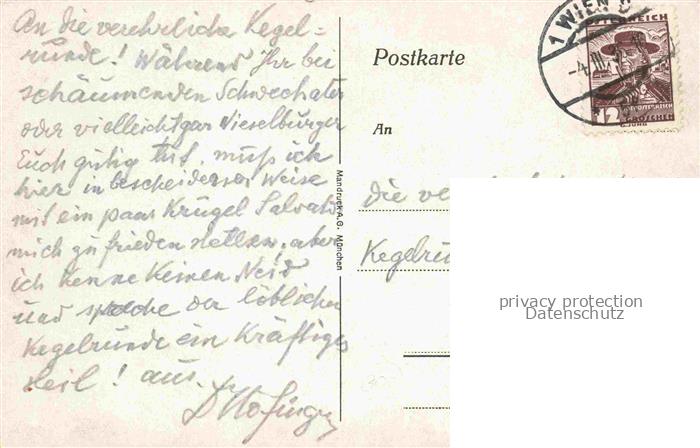 An die verehrliche Kegel=
runde! Während Ihr bei
schäumenden Schwechater
oder vielleicht gar Wieselburger
Euch gütig tut, muss ich
hier in bescheidener Weise
mit ein paar Krügel Salvator
mich zufrieden stellen, aber
ich kenne keinen Neid
und spreche der löblichen
Kegelrunde ein Kräftiges
Heil! aus.
Postkarte
An
die
Kegelru
Mandruck A.G. München
1 WIEN
-4.III.
ÖSTERREICH
12
GROSCHEN
privacy protection
Datenschutz